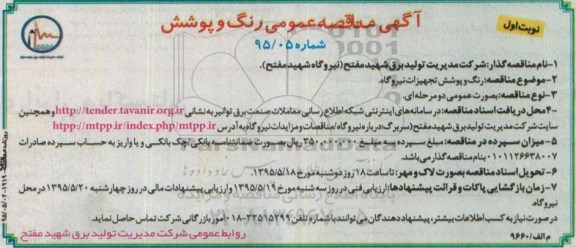 آگهی مناقصه عمومی رنگ و پوشش
نوبت اول
شماره ۹۵/۰۵
۱-نام مناقصه گذار: شرکت مدیریت تولید برق شهید مفتح (نیروگاه شهید مفتح).
۲-موضوع مناقصه: رنگ و پوشش تجهیزات نیروگاه.
۳-نوع مناقصه: بصورت عمومی دو مرحله ای.
۴-محل دریافت اسناد مناقصه: در سامانه های اینترنتی شبکه اطلاع رسانی معاملات صنعت برق توانیر به نشانی http://tender.tavanir.org.ir و همچنین
سایت شرکت مدیریت تولید برق شهید مفتح (سربرگ درباره نیروگاه/مناقصات و مزایدات نیروگاه به آدرس htpp://mtpp.ir/index.php/mtpp.ir
۵- میزان سپرده در مناقصه: مبلغ سپرده به مبلغ ۳۵۰/۰۰۰/۰۰۰ ریال بصورت ضمانتنامه بانکی/چک بانکی و یا واریز به حساب سپرده صادرات
۰۱۰۱۱۲۶۶۳۸۰۰۷ بنام مناقصه گذار می باشد.
۶- تحویل اسناد مناقصه بصورت لاک و مهر: تا ساعت ۱۸ روز دوشنبه مورخ ۱۳۹۵/۵/۱۸.
۷- زمان بازگشایی پاکات و قرائت پیشنهادها: ارزیابی فنی در روز سه شنبه مورخ ۱۳۹۵/۵/۱۹ و ارزیابی پیشنهادات مالی در روز چهارشنبه ۱۳۹۵/۵/۲۰ در محل
نیروگاه.
در صورت نیاز به کسب اطلاعات بیشتر، پیشنهاد دهندگان می توانند با شماره تلفن ۳۳۵۱۵۲۹۹-۰۱۸ امور بازرگانی شرکت تماس حاصل نماید.
روابط عمومی شرکت مدیریت تولید برق شهید مفتح
م الف/۹۶۶۰